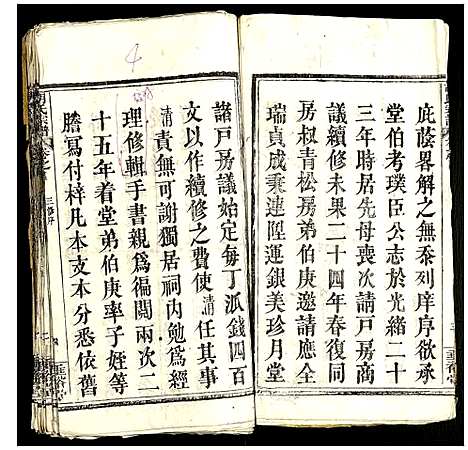 庇蔭畧解之無忝列庠序欲承
堂伯考璞臣公志於光緒二十
三年時居先母喪次請戸房商
議續修未果二十四年春復同
房叔青松房弟伯庚邀請應全
瑞貞成秉連陞運銀美珍月堂
諸戸房議始定每丁派錢四百
文以作續修之費使清任其事
清責無可謝獨居祠內勉為經
理修輯手書親為徧閲兩次二
十五年着堂弟伯庚率子姪等
謄寫付梓凡本支本分悉依舊
三修序